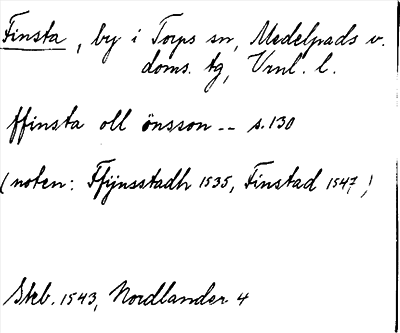 Finsta, by i Torps sn, Medelpads v.
doms. tg, Vrnl. l.
ffinsta oll önsson -- s. 130
(noten: Ffijnsstadh 1535, Finstad 1547)
Skb. 1543, Nordlander 4